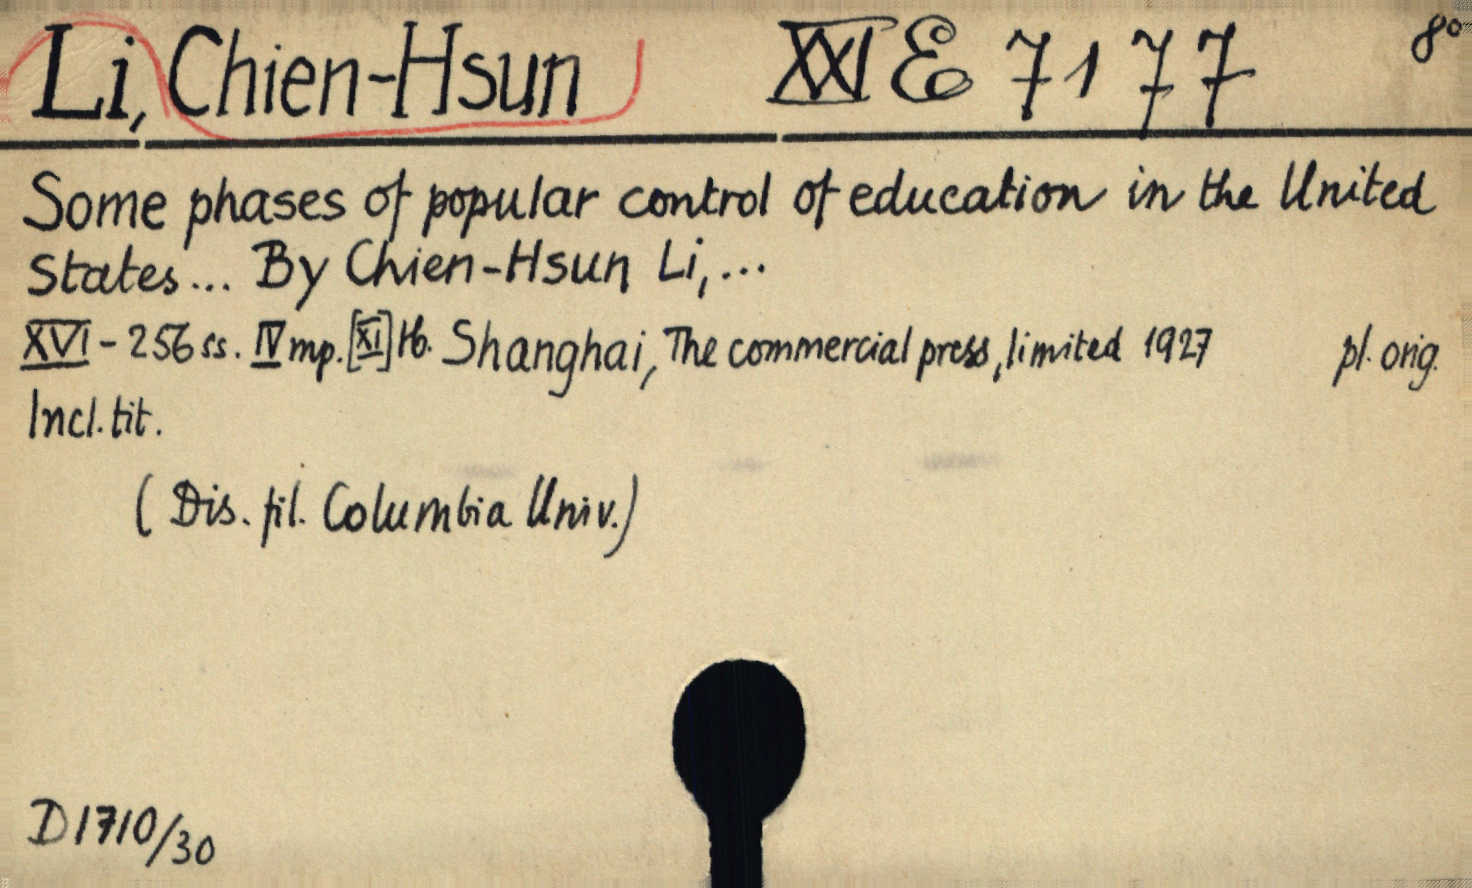 Li, Chien-Hsun XXI E 7177 8°
Some phases of popular control of education in the United
States... By Chien-Hsun Li,...
XVI - 256 ss. IV mp. [XI] tb. Shanghai, The commercial press, limited 1927 pl. orig.
Incl. tit.
(Dis. fil. Columbia Univ.)
D 1710/30